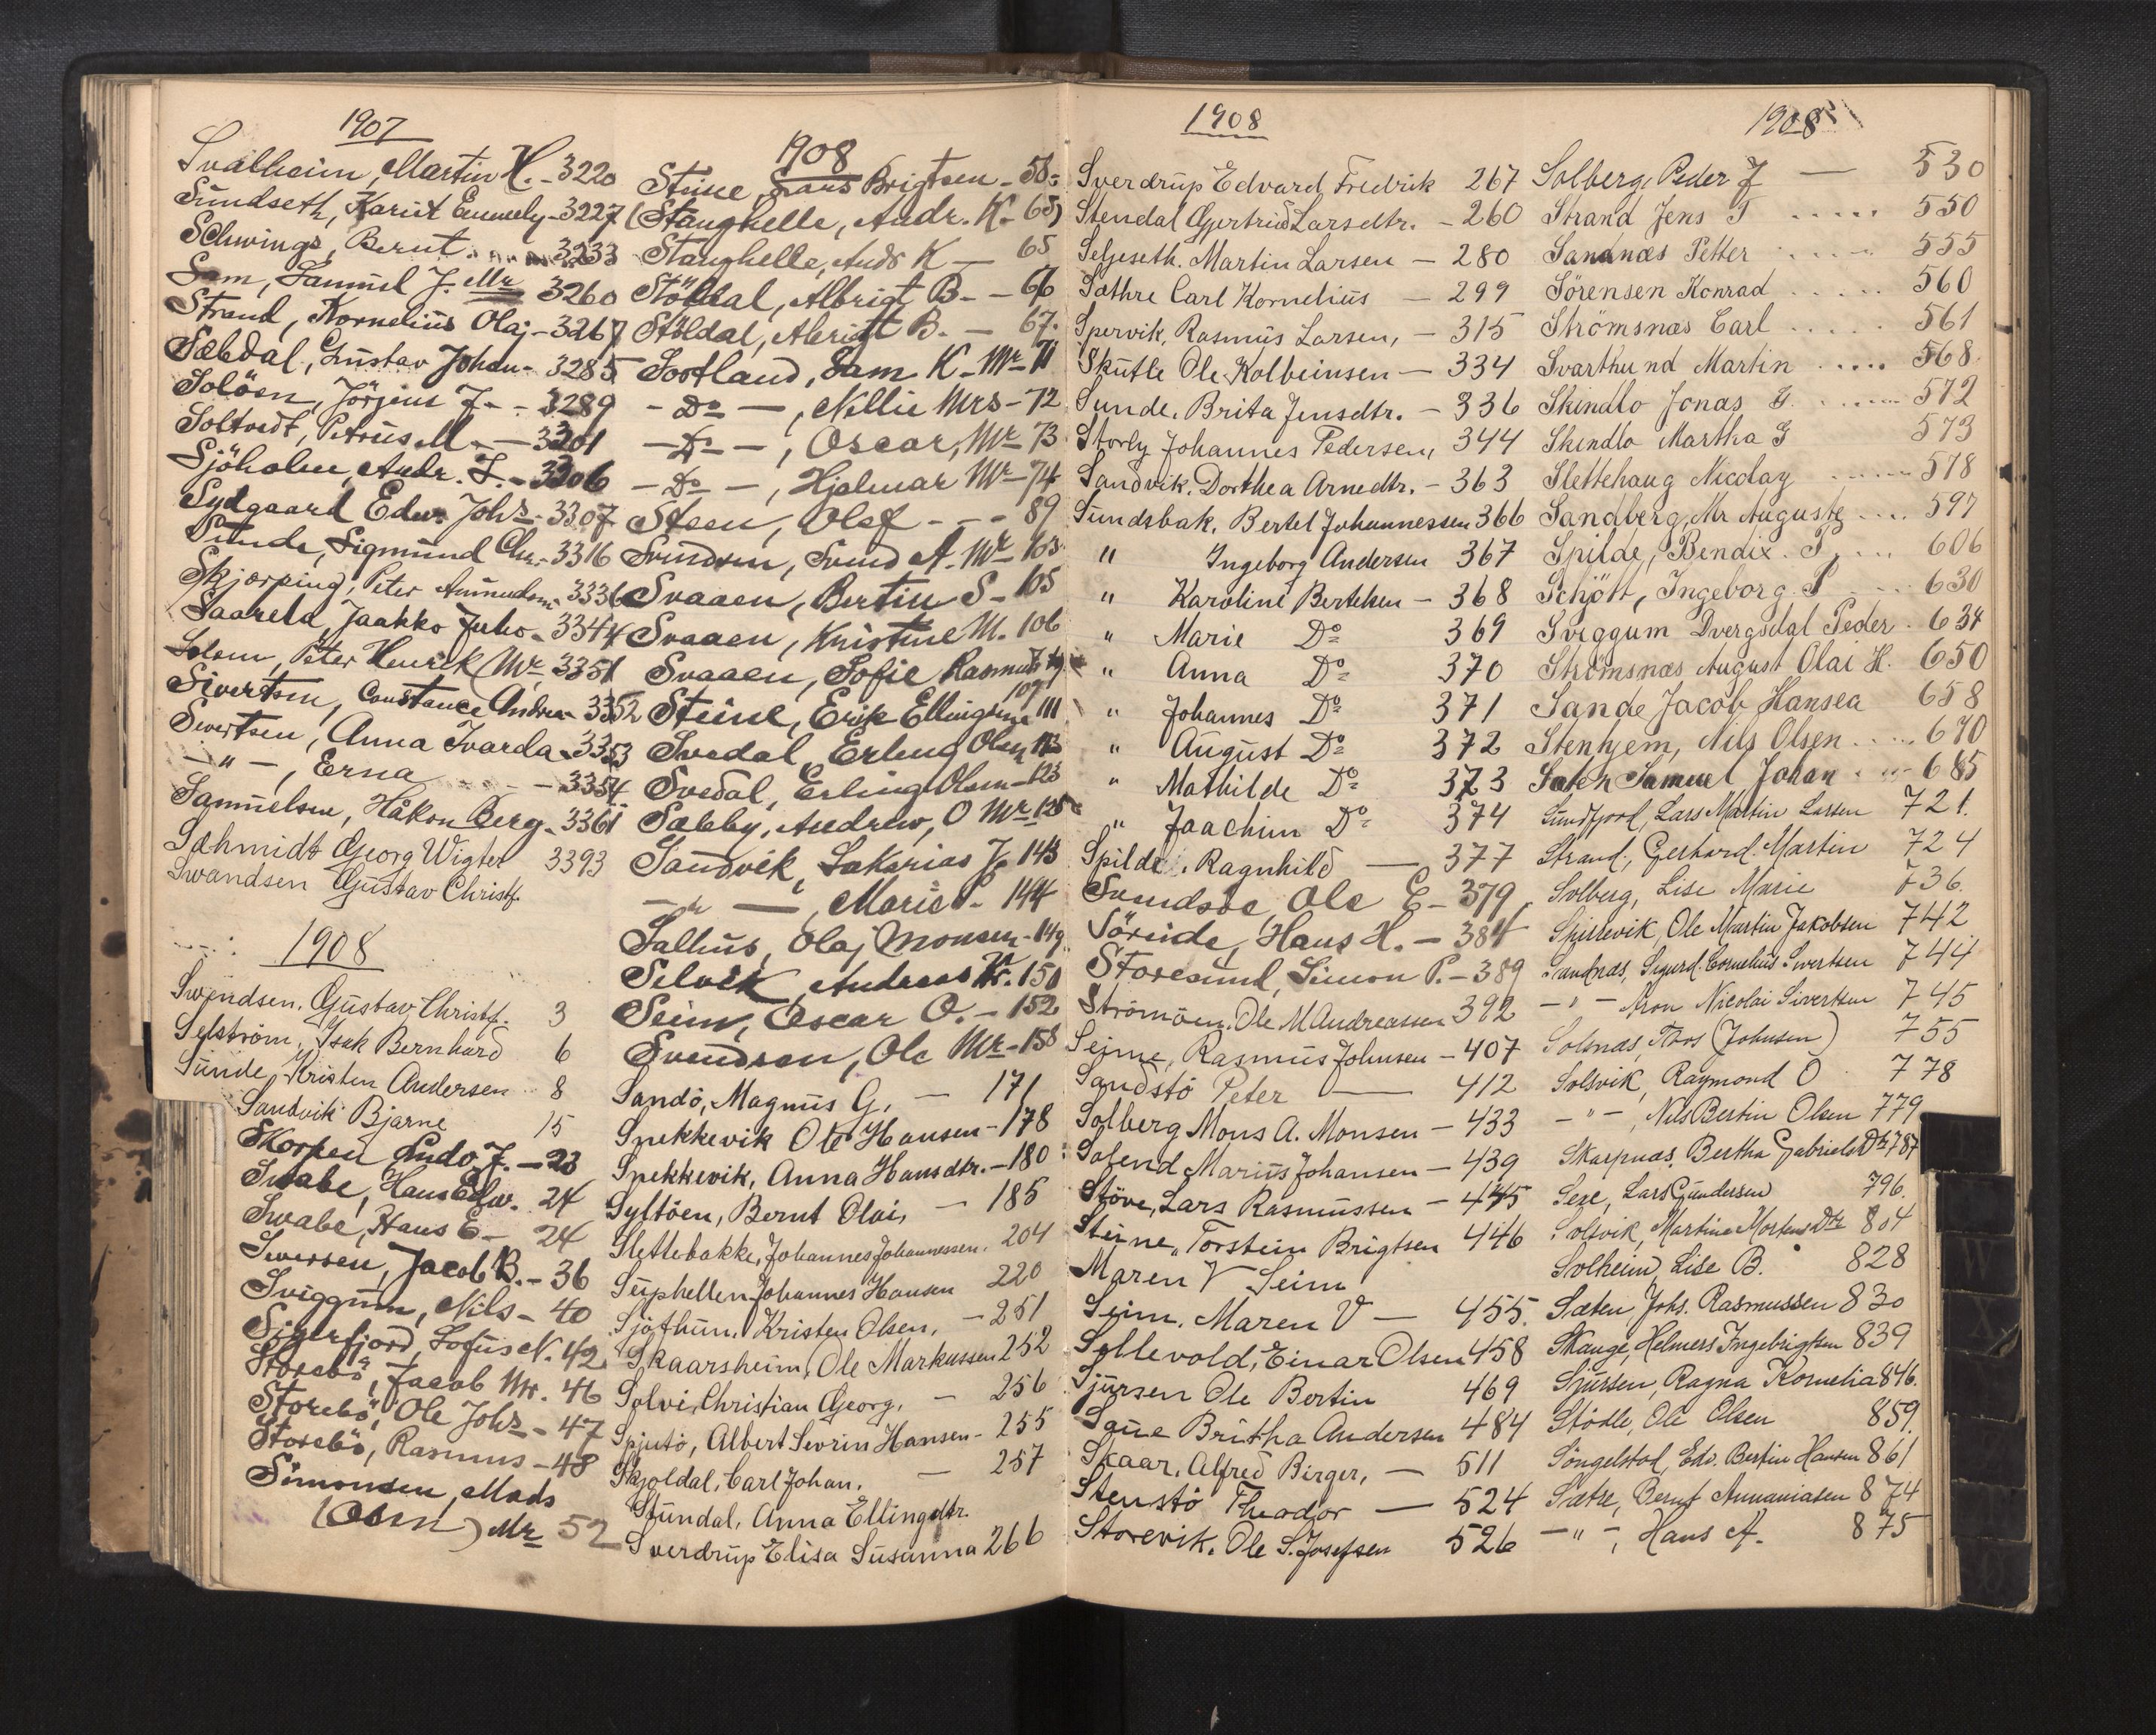 1907
Svalheim, Martin H. - 3220
Sundseth, Karut Emmely - 3227
Schwings, Bernt - 3233
Sam, Samuel J. Mr 3260
Strand, Kornelius Olaj - 3267
Sæbdal, Gustav Johan - 3285
Solöen, Jörjens J. - 3289
Soltvedt, Petrus M. - 3301
Sjöholm, Andr. J. - 3306
Sydgaard Edw. Johs - 3307
Sunde, Sigmund Chr. - 3316
Skjærping, Peter 3336
Saarela, Jaakko Juho - 3344
Solem, Peter Henrik Mr 3351
Sivertsen, Constance Andrea - 3352
Sivertsen, Anna Ivarda - 3353
- " -, Erna - 3354
Samuelsen, Håkon Berg - 3361
Schmidt Georg Wigter 3393
Swandsen Gustav Christf.
1908
Swendsen, Gustav Christf. 3
Selström, Isak Bernhard 6
Sunde, Kristen Andersen 8
Sandvik Bjarne 15
Skorpen Ludv J. - 23
Swabe, Hans Edw. 24
Swabe, Hans E - 24
Iversen, Jacob B. - 36
Sviggum, Nils - 40
Sigerfjord, Lofus N. 42
Storebö, Jacob Mr. 46
Storebö, Ole Johs - 47
Storebö, Rasmus - 48
Simonsen, Mads
(Olsen) Mr 52
1908
Steine Lars Brigtsen - 58
(Stanghelle, Andr. K - 65)
Stanghelle, Andr K - 65
Stöldal, Albrigt B. - 66
Stöldal, Albrigt B. - 67.
Sortland, Sam K - Mr 71
- Do -, Nillie Mrs - 72
- Do -, Oscar, Mr 73
- Do -, Hjalmar Mr - 74
Steen, Olef - - - 89
Svendsen, Svend A. Mr 103
Svaaen, Bertin S - 105
Svaaen, Kristine M. 106
Svaaen, Sofie Rasmusdtr 107
Steine, Erik Ellingsen 111
Svedal, Erling Olsen 123
Svedal, Erling Olsen - 123
Sæbby, Andrew, O Mr 135
Sandvik, Sakarias J. 143
- " -, Marie P. 144
Salhus, Olaj Monsen - 149
Selvik, Andreas Kr. 150
Seim, Oscar O. - 152
Svendsen, Ole Mr - 158
Sandö, Magnus G. - 171
Snekkevik Ole Hansen - 178
Spekkevik, Anna Hansdtr. - 180
Syltöen, Bernt Olai, - 185
Slettebakke, Johannes Johannessen. 204
Suphellen Johannes Hansen 220
Sjöthun, Kristen Olsen, - 251
Skaarsheim, Ole Markussen 252
Solvi, Christian Georg, - 256
Spjutö, Albert Sevrin Hansen - 255
Skjoldal, Carl Johan. - 257
Stundal, Anna Ellingsdtr.
Sverdrup Elisa Susanna 266
1908
Sverdrup Edvard Fredrik 267
Stendal Gjertrud Larsdtr. - 260
Seljeseth. Martin Larsen - 280
Sæthre Carl Kornelius - 299
Spervik, Rasmus Larsen, - 315
Skutle Ole Kolbeinsen - 334
Sunde, Brita Jensdtr. - 336
Storly Johannes Pedersen, 344
Sandvik. Dorthea Arnedtr. - 363
Sundsbak, Bertel Johannessen 366
" Ingeborg Andersen 367
" Karoline Bertelsen - 368
" Marie Do 369
" Anna Do 370
" Johannes Do 371
" August Do 372
" Mathilde Do 373
" Joachim Do 374
Spilde, Ragnhild - 377
Sundsöe, Ole E - 379
Söreide, Hans H. - 384
Storesund, Simon P. - 389
Strömöen, Ole M Andreassen 392
Seime, Rasmus Johnsen - 407
Sandstö Peter - 412
Solberg Mons A. Monsen - 433
Solend Marius Johansen - 439
Stöve, Lars Rasmussen - 445
Steine, Torstein Brigtsen 446
Maren V Seim
Seim, Maren V - 455.
Sellevold, Einar Olsen 458
Sjursen Ole Bertin 469
Saue Britha Andersen 484
Skaar, Alfred Birger, - 511
Stenstö Theodor - 524
Storevik, Ole S. Josefsen 526
1908
Solberg, Peder J - 530
Strand Jens T ..... 550
Sandnæs Petter ..... 555
Sörensen Konrad ..... 560
Strömsnæs Carl ..... 561
Svarthund Martin ..... 568.
Skindlo Jonas G. ..... 572
Skindlo Martha G 573
Slettehaug Nicolay ..... 578
Sandberg, Mr Auguste .... 597
Spilde, Bendix. P. ... 606
Schjött, Ingeborg. P ... 630
Sviggum Dvergsdal Peder. 634
Strömsnæs August Olai H. 650
Sande Jacob Hansea 658
Stenhjem, Nils Olsen ..... 670
Sæten Samuel Johan 685
Sundfjord, Lars Martin Larsen 721.
Strand, Gerhard. Martin 724
Solberg, Lise Marie 736.
Spillevik, Ole Martin Jakobsen 742
Sandnæs, Sigurd Cornelius Sivertsen 744
- " - Aron Nicolai Sivertsen 745
Solsnæs, Thos (Johnsen) 755
Solsvik, Raymond O 778
- " -, Nils Bertin Olsen 779
Skarpnæs, Bertha Gabriels Dtr 787
Seze, Lars Gundersen 796.
Solsvik, Martine Mortens Dtr 804
Solheim, Lise B. 828
Sæten, Johs. Rasmussen 830
Skauge, Helmers Ingebrigtsen 839
Sjursen, Ragna Kornelia 846.
Stödle, Ole Olsen 859.
Söngelstad, Edv. Bertin Hansen 861
Sætre, Bernt Annaniasen 874
- " -, Hans A. 875
W
X